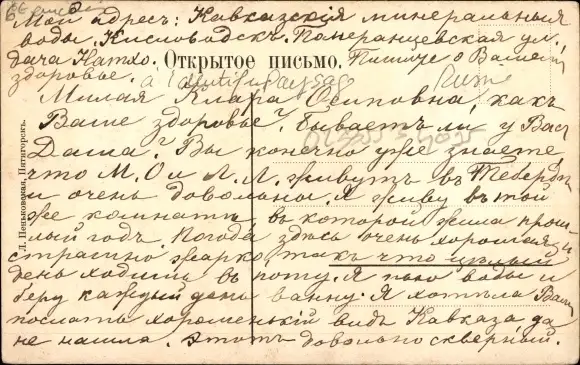 Мой адресъ: Кавказскія минеральныя
воды. Кисловодскъ. Померанцевская ул.
дача Натхо. Открытое письмо. Пишите о Вашемъ
здоровье. a beautiful paysage Russe
Милая Клара Осиповна, какъ
Ваше здоровье? Бываетъ ли у Васъ
Даша? Вы конечно уже знаете
что М. О и Л. Л. живутъ въ Тебердѣ
и очень довольны. Я живу въ той
же комнатѣ, въ которой жила прош-
лый годъ. Погода здѣсь очень хорошая,
страшно жарко такъ что цѣлый
день ходишь въ поту. Я пью воды и
беру каждый день ванну. Я хотѣла Вамъ
послать хорошенькій видъ Кавказа да
не нашла. Этотъ довольно скверный.
Л. Пеньковская, Пятигорскъ.